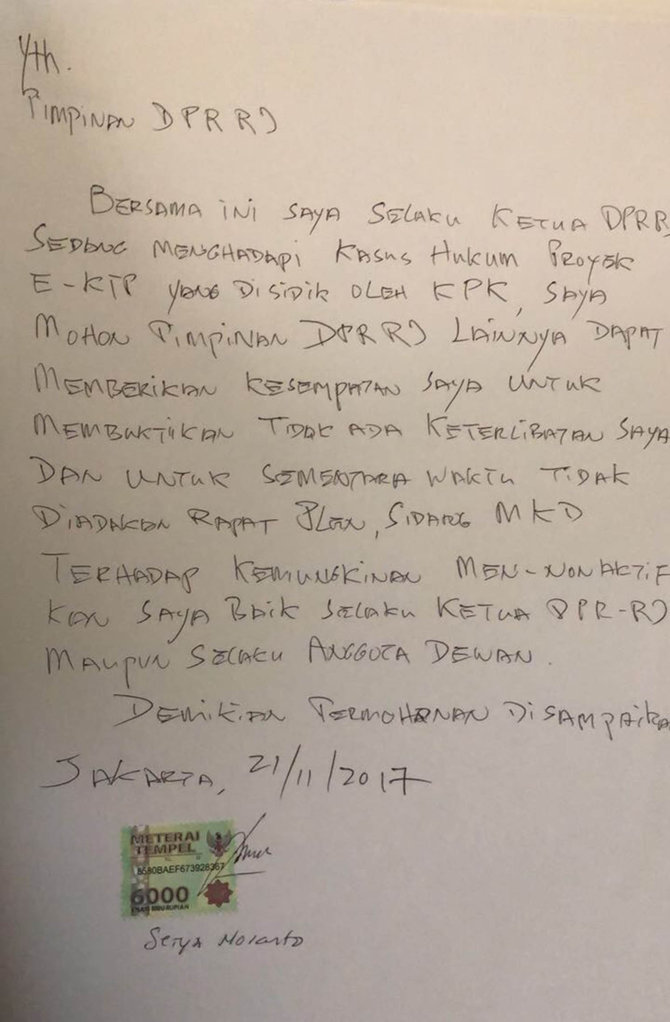 Yth.
PIMPINAN DPR RI
BERSAMA INI SAYA SELAKU KETUA DPR R
SEDANG MENGHADAPI KASUS HUKUM PROYEK
E-KTP YANG DISIDIK OLEH KPK, SAYA
MOHON PIMPINAN DPR RI LAINNYA DAPAT
MEMBERIKAN KESEMPATAN SAYA UNTUK
MEMBUKTIKAN TIDAK ADA KETERLIBATAN SAYA
DAN UNTUK SEMENTARA WAKTU TIDAK
DIADAKAN RAPAT PLENO, SIDANG MKD
TERHADAP KEMUNGKINAN MEN-NONAKTIF
KAN SAYA BAIK SELAKU KETUA DPR-RI
MAUPUN SELAKU ANGGOTA DEWAN.
DEMIKIAN PERMOHONAN DISAMPAIKA
JAKARTA, 21/11/2017
METERAI
TEMPEL
6000
ENAM RIBU RUPIAH
Setya Novanto